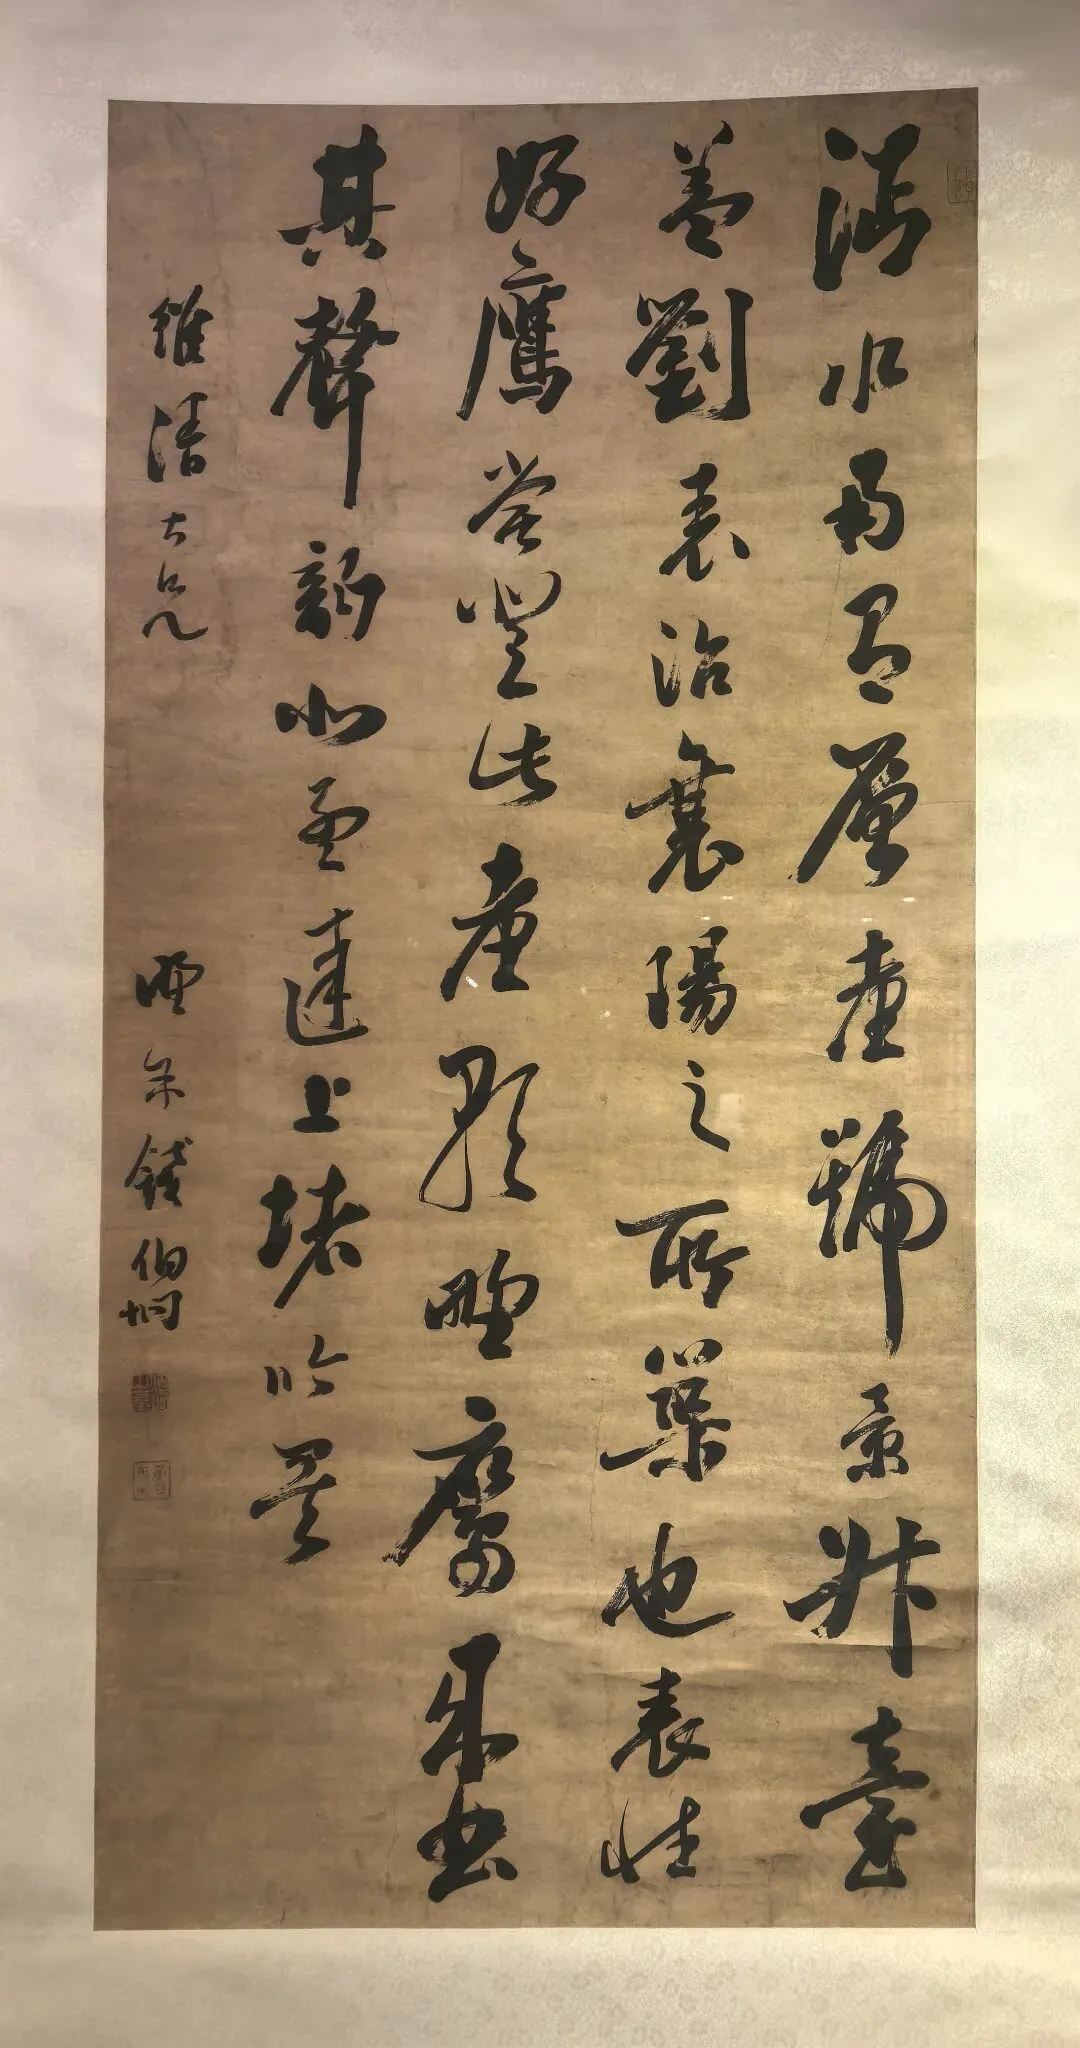 沔水南有層臺號景升臺
蓋劉表治襄陽之所築也表性
好鷹嘗登此臺歌野鷹來曲
其聲韻似孟達上堵吟矣
維清大兄
魯斯錢伯坰